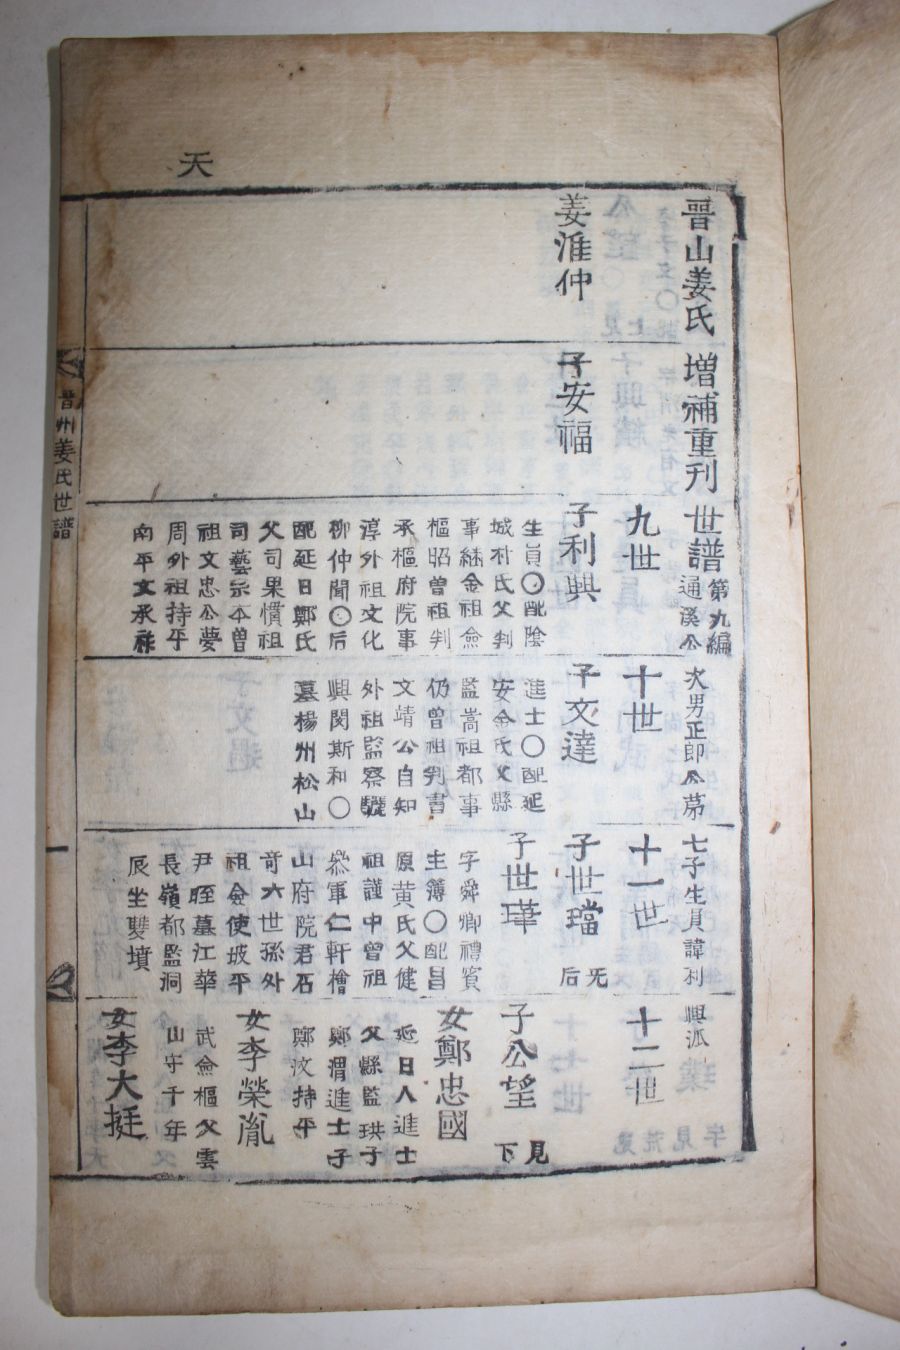 天
晋山姜氏 增補重刊 世譜 第九編
通溪公
次男正郎公第
七子生員諱利
興派
姜淮仲
子安福
九世
子利興
生員〇配陰
城朴氏父判
事継金祖僉
樞昭曽祖判
承樞府院事
淳外祖文化
柳仲聞〇后
配延日鄭氏
父司果慣祖
司藝宗本曽
祖文忠公夢
周外祖持平
南平文承祚
十世
子文達
進士〇配延
安金氏父縣
監嵩祖都事
仍曽祖判書
文靖公自知
外祖監察驪
興閔斯和〇
墓楊州松山
十一世
子世璫
无
后
子世琿
字舜卿禮賓
主簿〇配昌
原黄氏父健
祖謹中曽祖
叅軍仁軒檜
山府院君石
奇六世孫外
祖僉使坡平
尹晊墓江華
長嶺都監洞
辰坐雙墳
十二世
子公望
見
下
女鄭忠國
延日人進士
父縣監珙子
女李榮胤
鄭渭進士子
鄭汶持平
女李大挺
武僉樞父雲
山守千年
晋州姜氏世譜